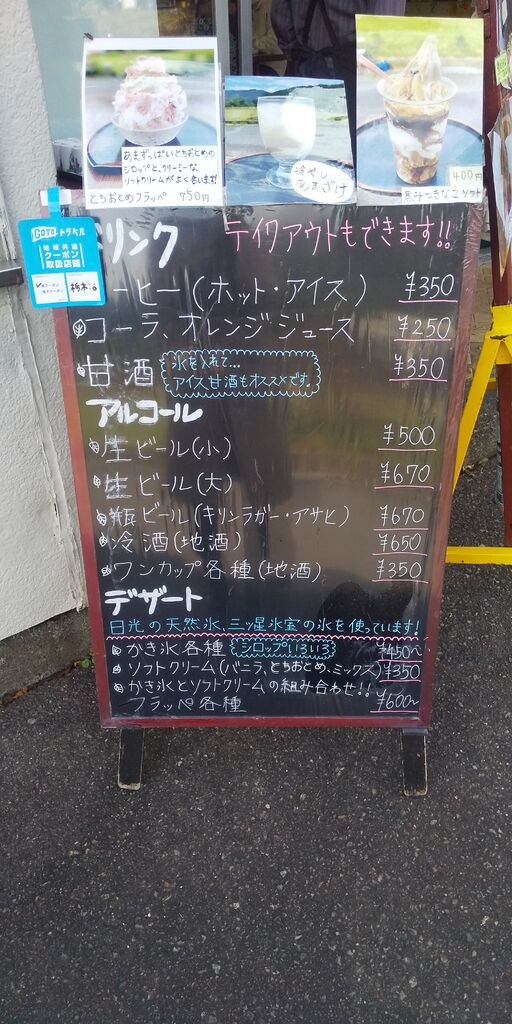 あまずっぱいとちおとめの
シロップと、クリーミーな
ソフトクリームがよく合います!
とちおとめフラッペ 750円
冷やし
あまざけ
400円
黒みつきなこソフト
GOTOトラベル
地域共通
クーポン
取扱店舗
栃木
リンク
テイクアウトもできます!!
ーヒー(ホット・アイス) ¥350
コーラ、オレンジジュース ¥250
甘酒 ¥350
氷を入れて…
アイス甘酒もオススメです。
アルコール
生ビール(小) ¥500
生ビール(大) ¥670
瓶ビール(キリンラガー・アサヒ) ¥670
冷酒(地酒) ¥650
ワンカップ各種(地酒) ¥350
デザート
日光の天然氷、三ッ星氷室の氷を使っています!
かき氷各種 シロップいろいろ ¥450~
ソフトクリーム(バニラ、とちおとめ、ミックス) ¥350
かき氷とソフトクリームの組み合わせ!!
フラッペ各種 ¥600~